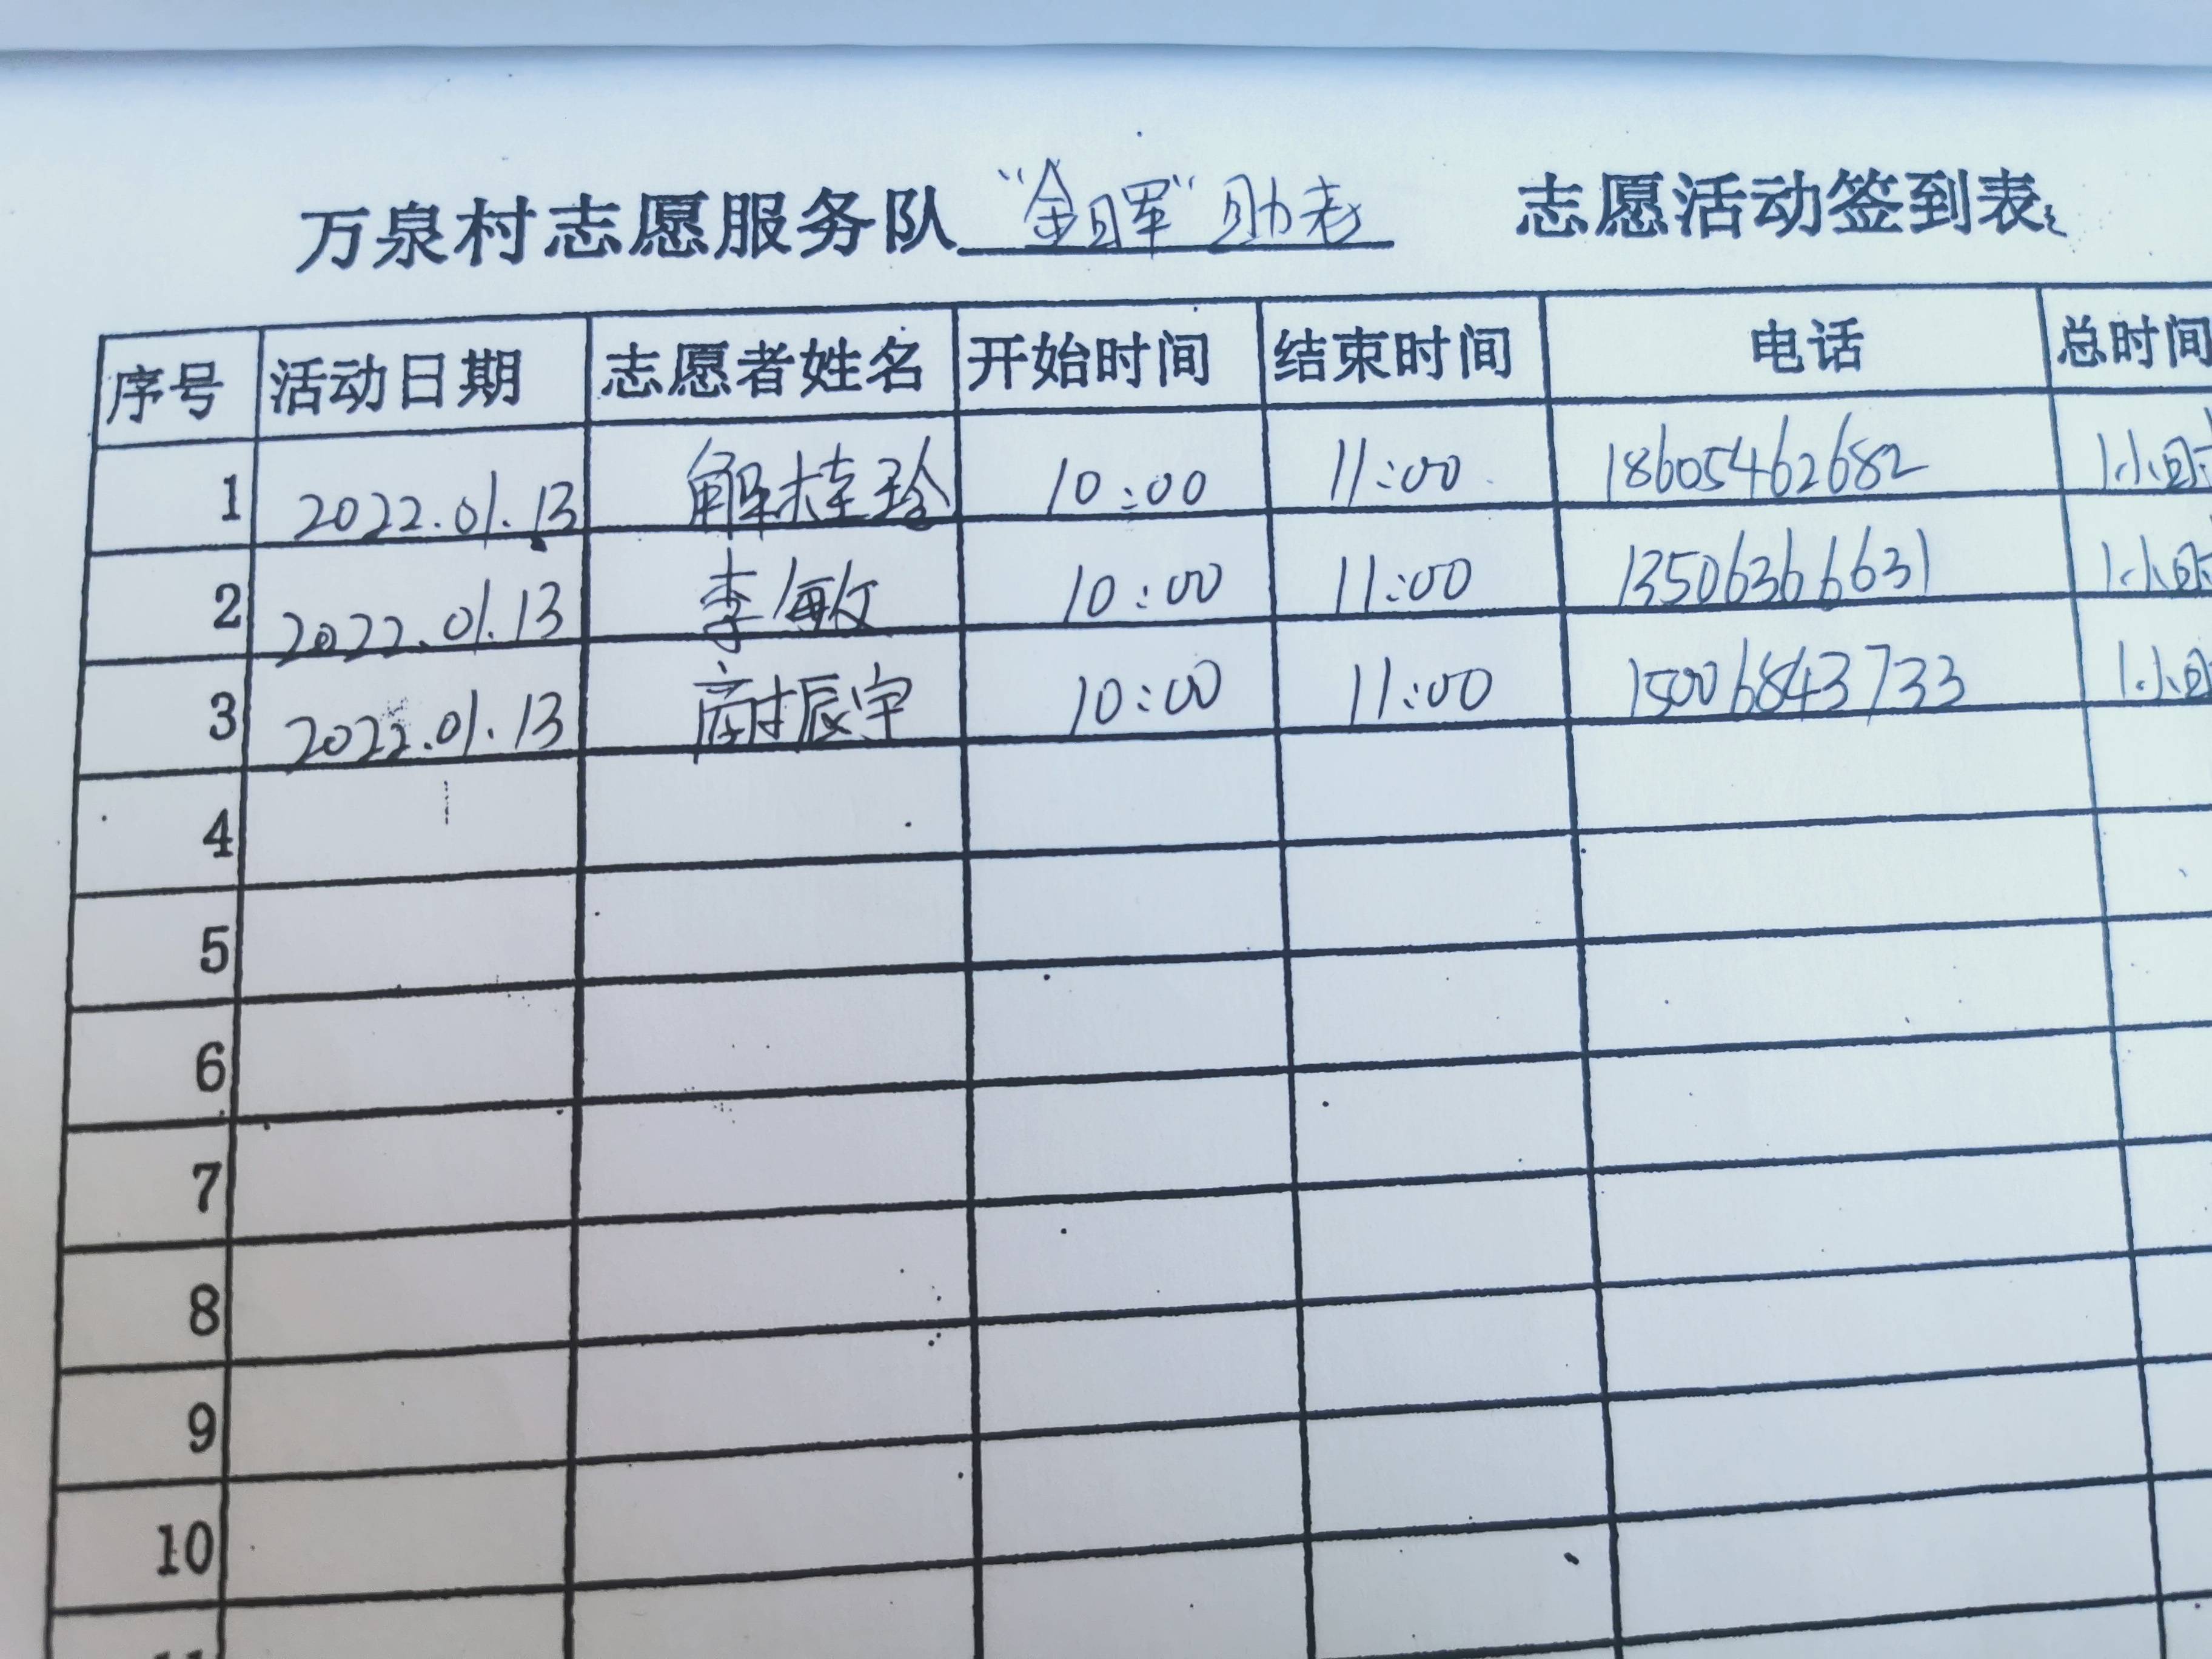 万泉村志愿服务队 “金晖”助老 志愿活动签到表
序号 活动日期 志愿者姓名 开始时间 结束时间 电话 总时间
1 2022.01.13 解桂珍 10:00 11:00 18605462682 1小时
2 2022.01.13 李敏 10:00 11:00 13506366631 1小时
3 2022.01.13 尉振宇 10:00 11:00 15006843733 1小时
4
5
6
7
8
9
10